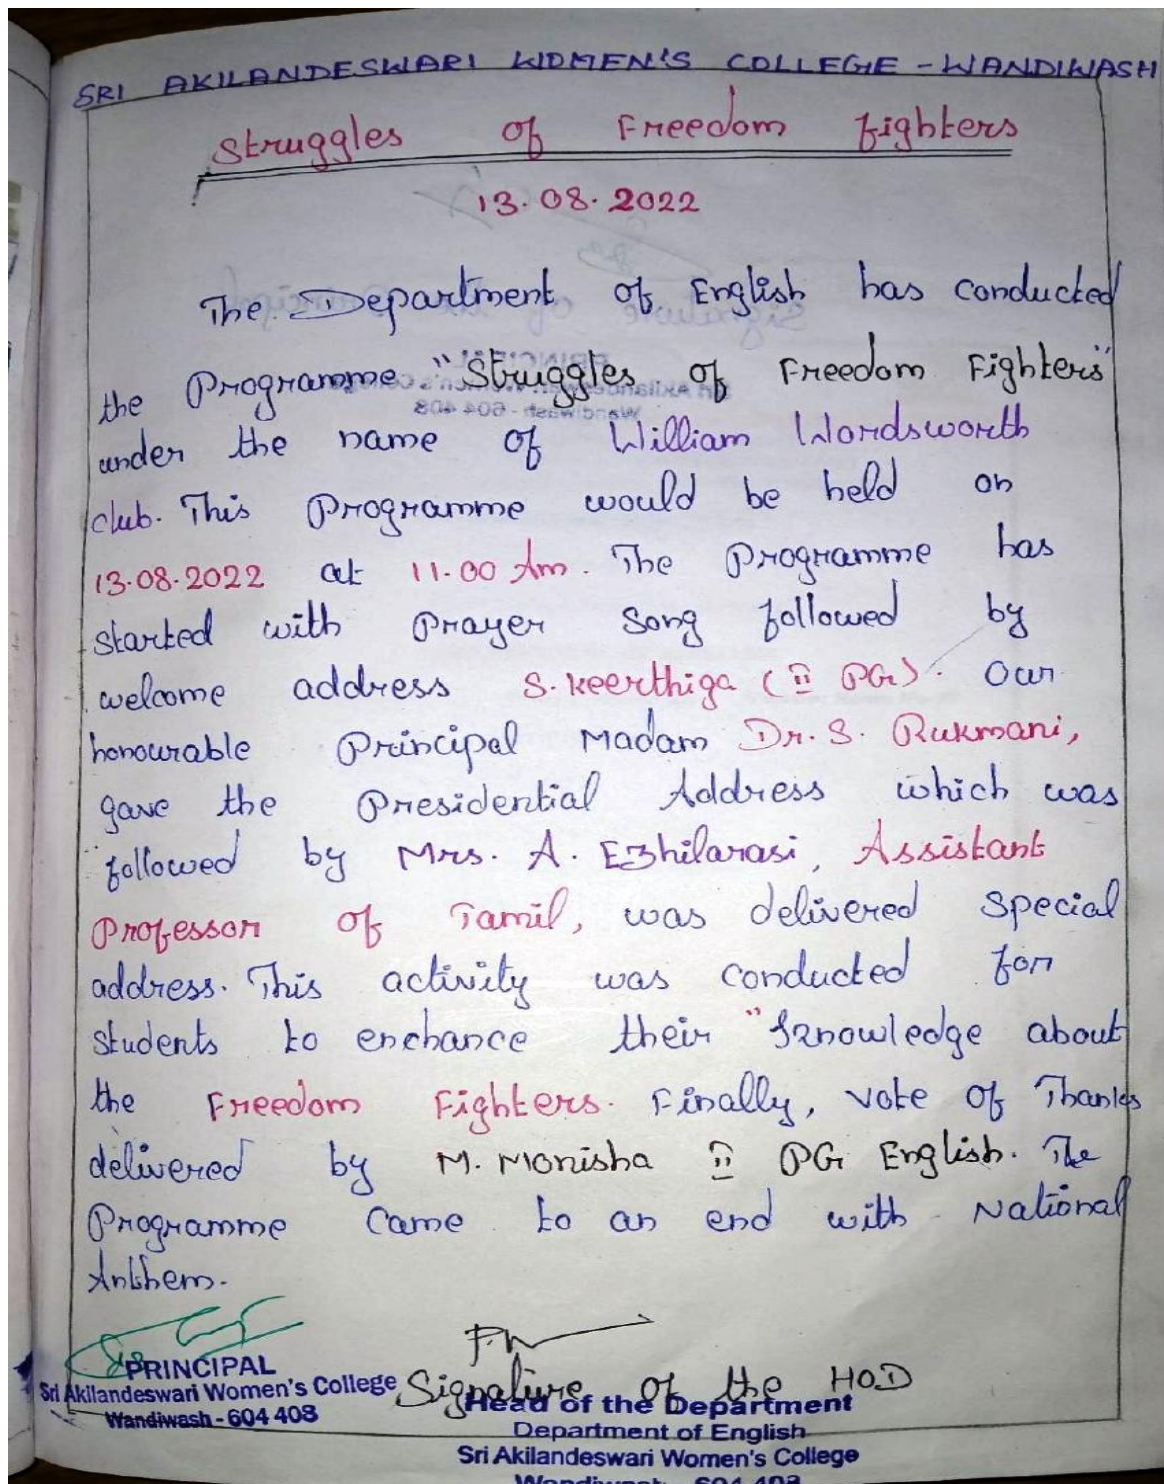 SRI AKILANDESWARI WOMEN'S COLLEGE - WANDIWASH
Struggles of Freedom fighters
13.08.2022
The Department of English has conducted
the Programme "Struggles of Freedom Fighters"
under the name of William Wordsworth
club. This Programme would be held on
13.08.2022 at 11.00 Am. The Programme has
started with Prayer Song followed by
welcome address S.Keerthiga (II PG). Our
honourable Principal Madam Dr. S. Rukmani,
gave the Presidential Address which was
followed by Mrs. A. Ezhilarasi, Assistant
Professor of Tamil, was delivered Special
address. This activity was conducted for
students to enchance their "Knowledge about
the Freedom Fighters. Finally, vote of Thanks
delivered by M. Monisha II PG English. The
Programme came to an end with National
Anthem.
PRINCIPAL
Sri Akilandeswari Women's College
Wandiwash - 604 408
Signature of the HOD
Head of the Department
Department of English
Sri Akilandeswari Women's College
Wandiwash